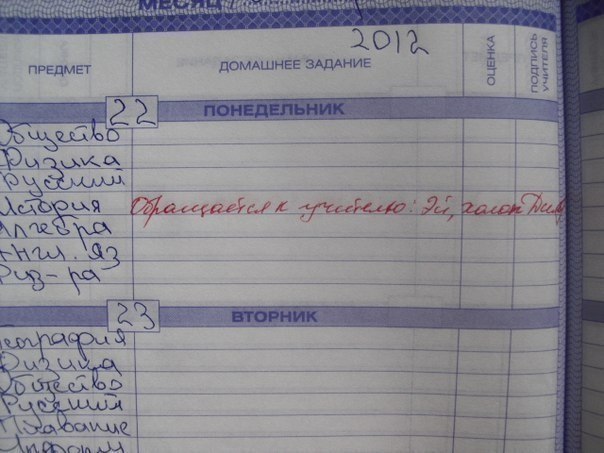 МЕСЯЦ /
2012
ПРЕДМЕТ
ДОМАШНЕЕ ЗАДАНИЕ
ОЦЕНКА
ПОДПИСЬ УЧИТЕЛЯ
22 ПОНЕДЕЛЬНИК
Общество
Физика
Русский
История Обращается к учителю: Эй, холоп
Алгебра
Англ. яз
Физ-ра
23 ВТОРНИК
География
Физика
Общество
Русский
Плавание